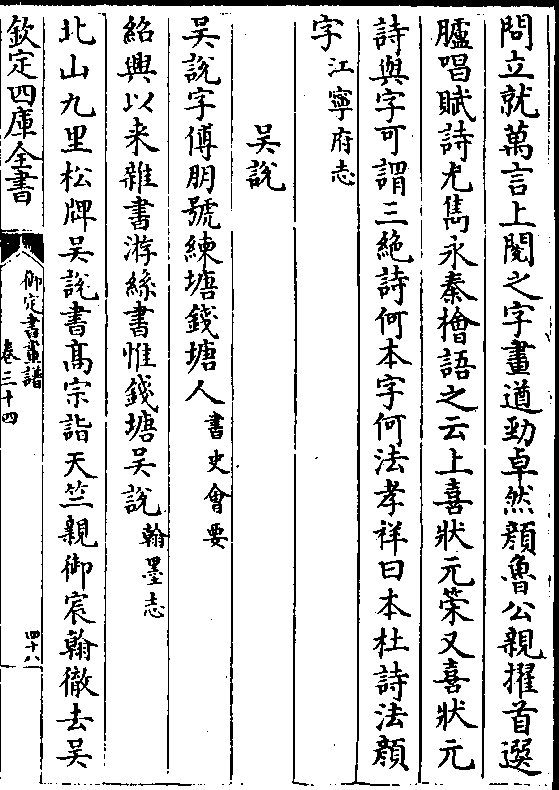 問立就萬言上閱之字畫遒勁卓然顔魯公親擢首選
臚唱賦詩尤雋永秦檜語之云上喜狀元策又喜狀元
詩與字可謂三絶詩何本字何法孝祥曰本杜詩法顔
字江寧府志
吴説
吴説字傅朋號練塘錢塘人書史會要
紹興以来雜書游絲書惟錢塘吴説翰墨志
北山九里松牌吴説書髙宗詣天竺親御宸翰徹去吴
欽定四庫全書
御定書畫譜
卷三十四
四十八